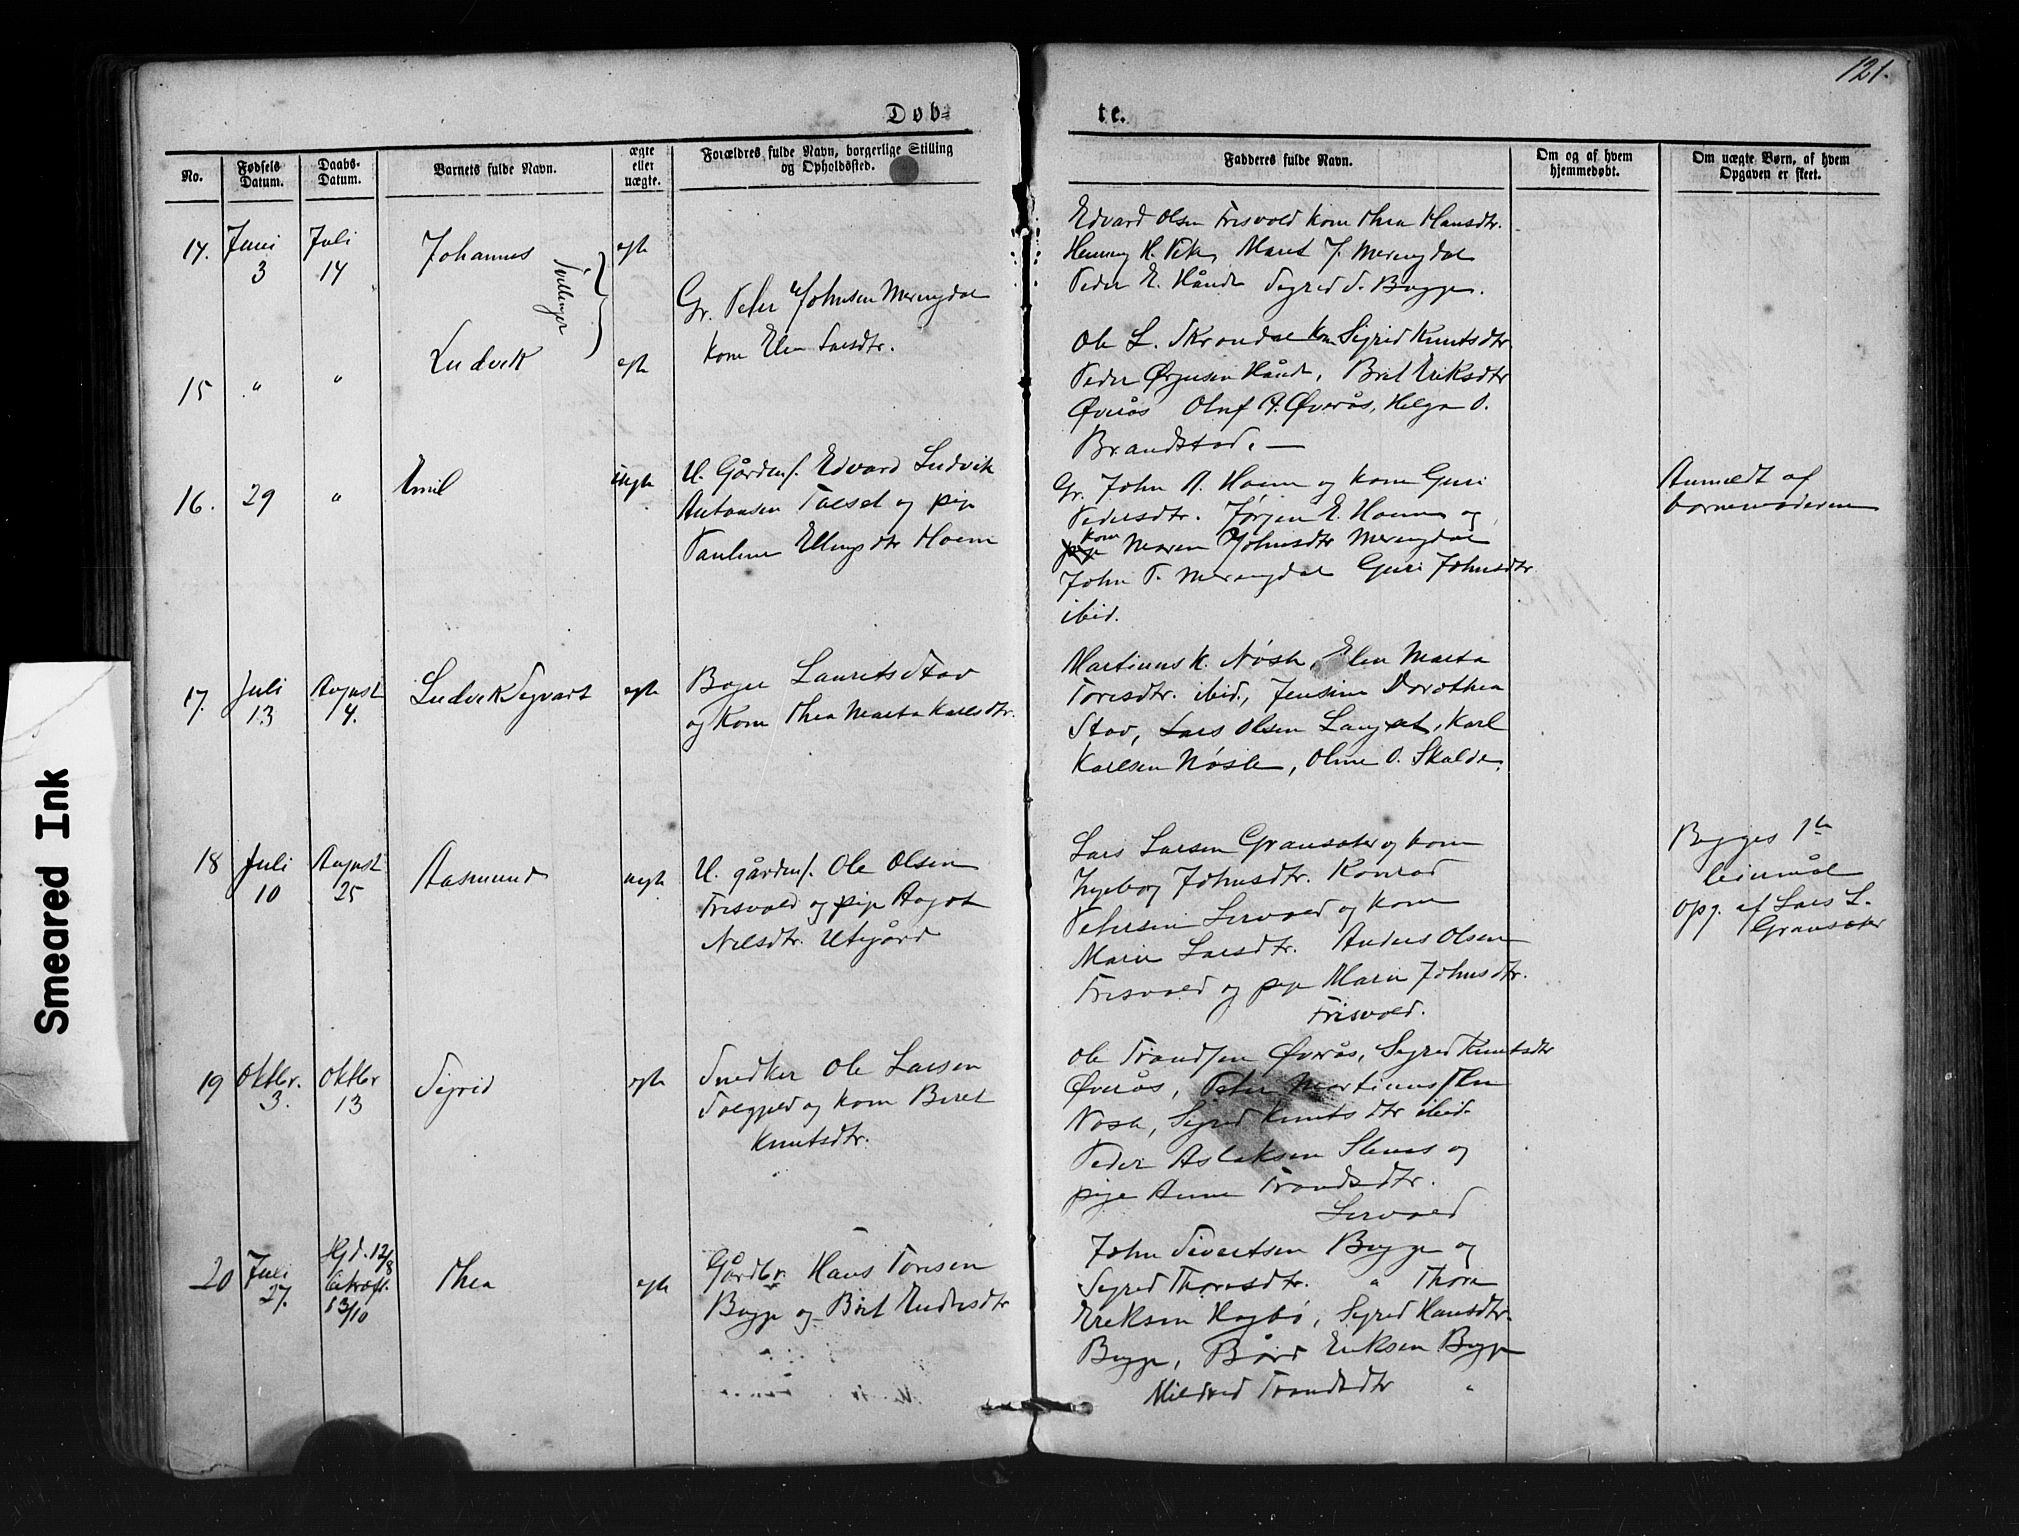 121.
Døb-
te.
No.
Fødsels
Datum.
Daabs-
Datum.
Barnets fulde Navn.
ægte
eller
uægte.
Forældres fulde Navn, borgerlige Stilling
og Opholdssted.
Fadderes fulde Navn.
Om og af hvem
hjemmedøbt.
Om uægte Børn, af hvem
Opgaven er skeet.
14.
Juni
3
Juli
14
Johannes
Tvillinger
egte
Gr. Peter Johnsen Merengdal
kone Elen Larsdtr.
Edvard Olsen Frisvold kone Thea Hansdtr.
Henning H. Vike, Maret J. Merengdal
Peder E. Hånde Segrid S. Bugge.
15
"
"
Ludvik
egte
Ole L. Skrondal kone Sigrid Knutsdtr
Peder Ørjensen Hånde, Brit Eriksdtr
Øverås Oluf P. Øverås, Helga O.
Brandstad. —
16.
29
"
Emil
uegte
U. Gårdm/. Edvard Ludvik
Antonsen Talset og pige
Pauline Ellingsdtr Hoem
Gr. John A. Hoem og kone Guri
Pedersdtr. Jørgen E. Hoem og
kone Maren Johnsdtr Merengdal
John P. Merengdal Guri Johnsdtr
ibid.
Anmeldt af
barnemoderen
17.
Juli
13
August
14.
Ludvik Segvart
egte
Boger Laurits Stav
og kone Thea Marta Karlsdtr.
Martinus K. Nøste, Elen Marta
Toresdtr. ibid., Jensine Dorothea
Stav, Lars Olsen Langset, Karl
Karlsen Nøste, Oline O. Skalde.
18
Juli
10
August
25
Aasmund
uegte
U. gårdm/. Ole Olsen
Frisvold og pige Aagot
Nilsdtr. Utigård
Lars Larsen Gransæter og kone
Ingeborg Johnsdtr. Konrad
Petersen Lervold og kone
Marie Larsdtr. Anders Olsen
Frisvold og pige Marie Johnsdtr.
Frisvold.
Begges 1ste
leiermål
Opg. af Lars L.
Gransæter
19
Oktbr.
3.
Oktbr
13
Sigrid
egte
Snedker Ole Larsen
og kone Beret
Knutsdtr.
Ole Trondsen Øverås, Segred Knutsdtr
Øverås, Peter Martinus
Nøste, Sigrid Knutsdtr ibid.
Peder Aslaksen Slenes og
pige Anne Trondsdtr.
Lervold
20
Juli
27.
Hjd. 12/8
13/10
Thea
egte
Gårdbr. Hans Toresen
Bugge og Brit Endresdtr
John Sivertsen Bugge og
Segred Thoresdtr. " Thore
Eriksen Hagbø, Segred Hansdtr.
Bugge, Bård Eriksen Bugge
Mildred Trondsdtr "
Smeared Ink